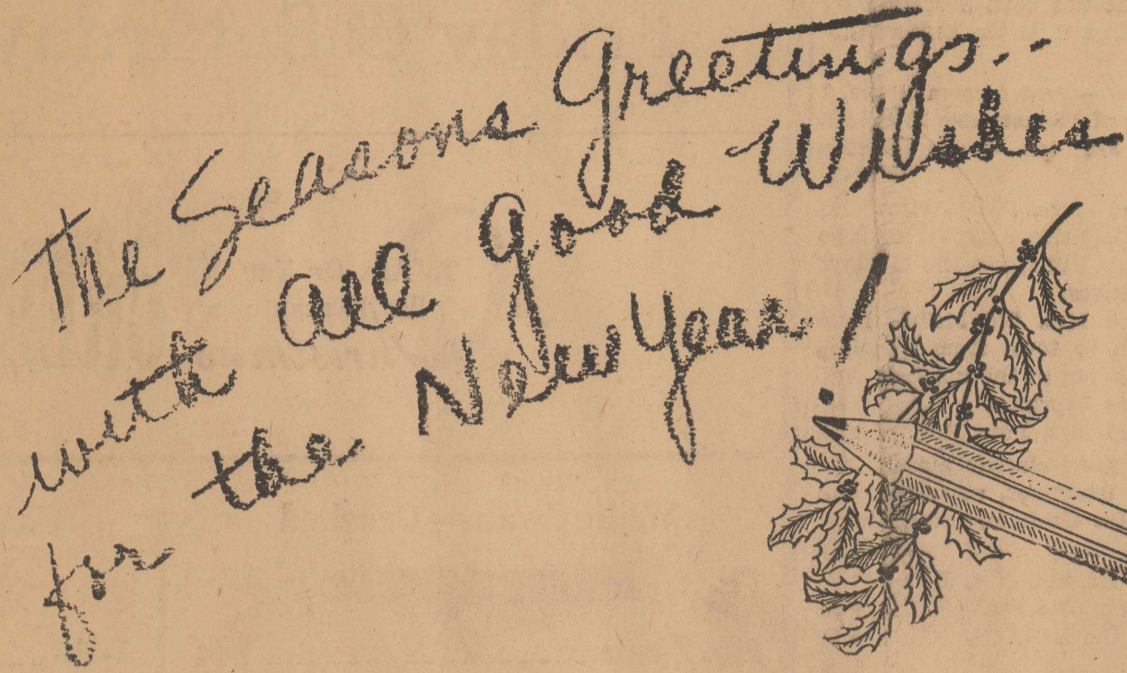 The Seasons Greetings..
with all good Wishes
for the New Year!